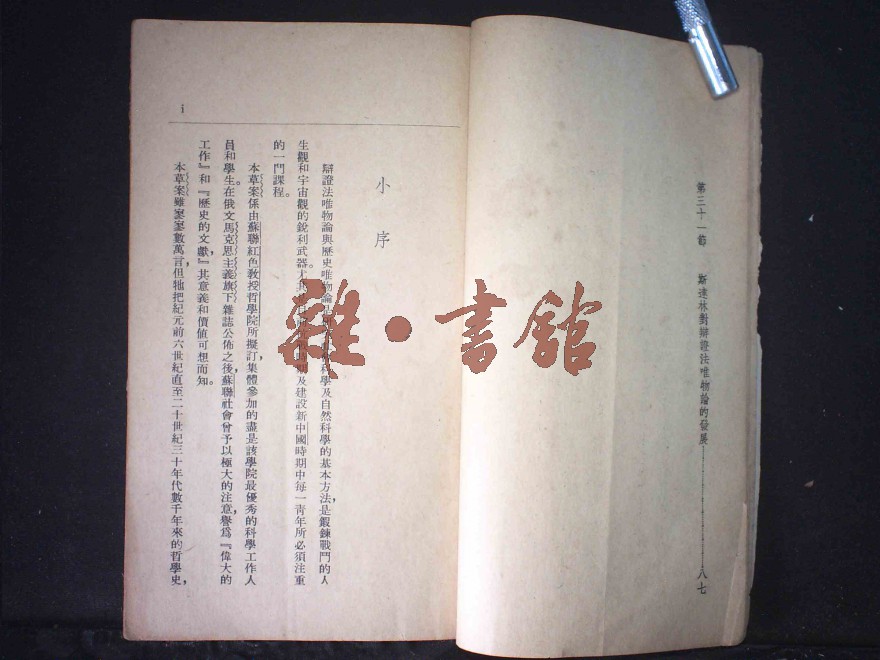 第三十一節　斯達林對辯證法唯物論的發展 八七
小序
辯證法唯物論與歷史唯物論是 科學及自然科學的基本方法，是鍛鍊戰鬥的人
生觀和宇宙觀的銳利武器。尤其 時期及建設新中國時期中每一青年所必須注重
的一門課程。
本草案係由蘇聯紅色教授哲學院所擬訂，集體參加的盡是該學院最優秀的科學工作人
員和學生。在俄文馬克思主義旗下雜誌公佈之後，蘇聯社會曾予以極大的注意，譽爲『偉大的
工作』和『歷史的文獻』，其意義和價値可想而知。
本草案雖寥寥數萬言，但牠把紀元前六世紀直至二十世紀三十年代數千年來的哲學史，
i
雜·書館